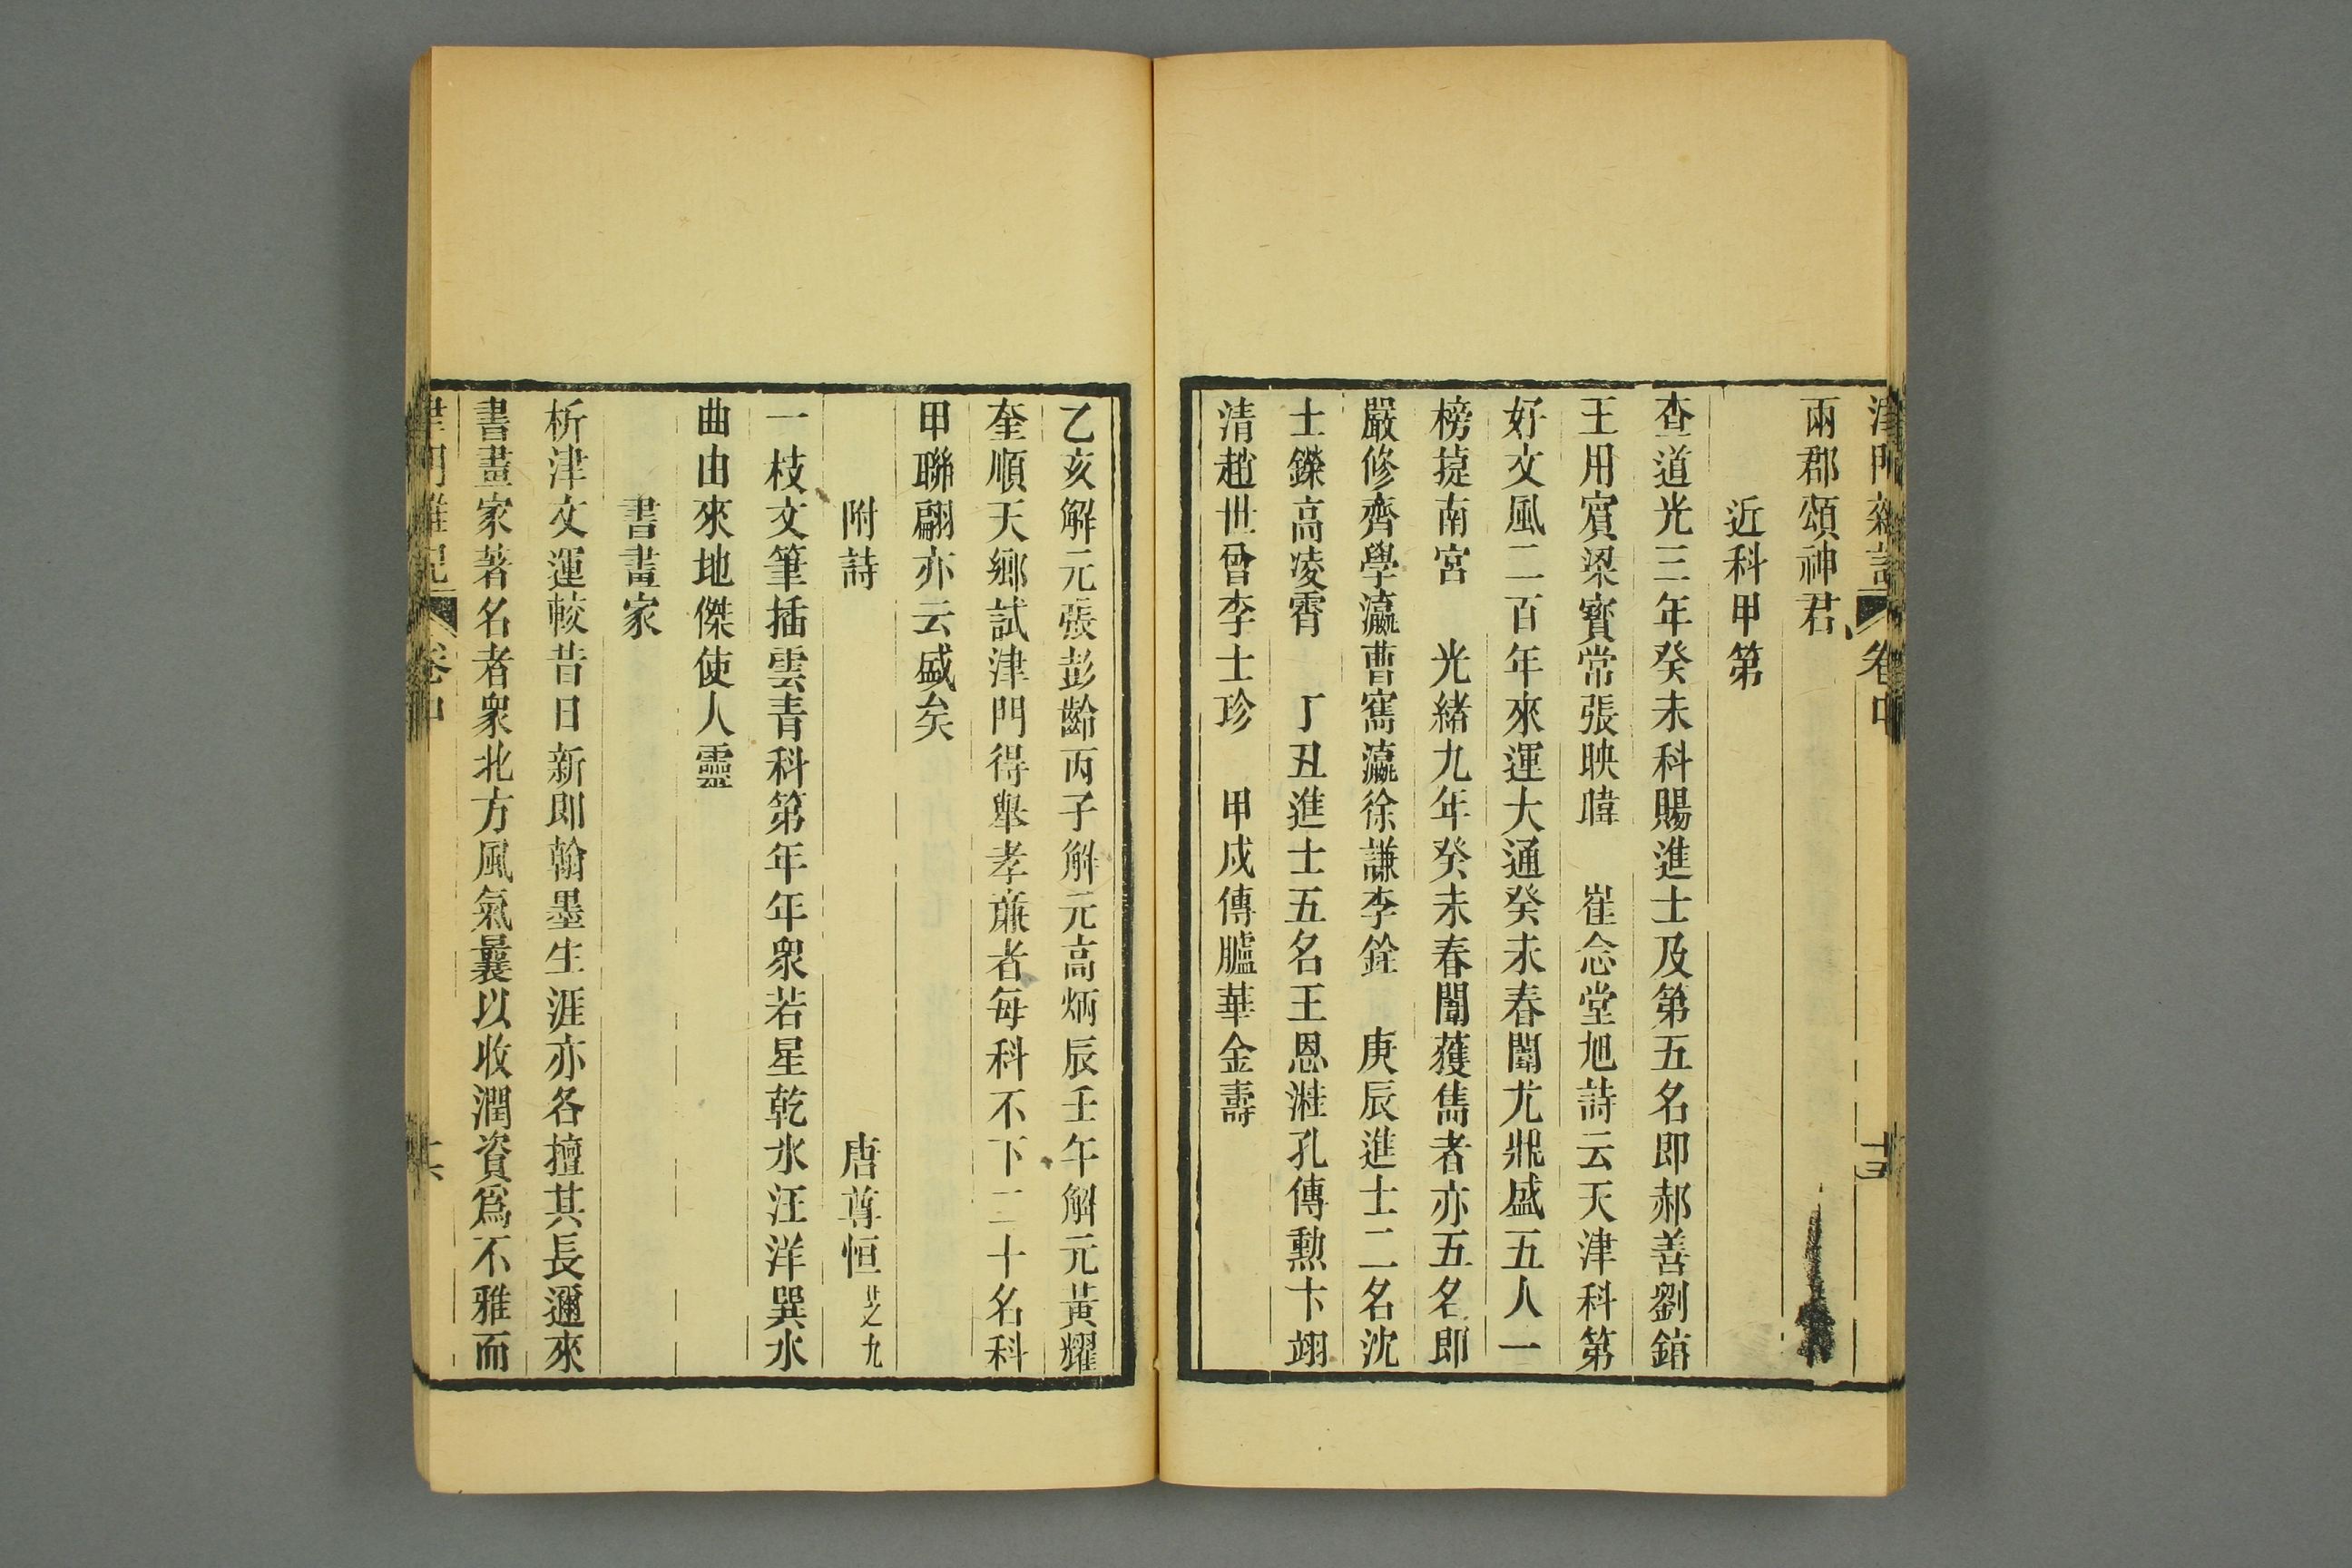 津門雜記 卷中 十五
兩郡頌神君
近科甲第
查道光三年癸未科賜進士及第五名即郝善劉錥
王用賓梁寶常張映暐 崔念堂旭詩云天津科第
好文風二百年來運大通癸未春闈尤鼎盛五人一
榜㨗南宮 光緒九年癸未春闈獲雋者亦五名即
嚴修齊學瀛曹寯瀛徐謙李銓 庚辰進士二名沈
士鑅高凌霄 丁丑進士五名王恩溎孔傳勲卞翊
清趙世曾李士珍 甲戌傳臚華金壽
乙亥解元張彭齡丙子觧元高炳辰壬午觧元黃耀
奎順天鄉試津門得舉孝亷者每科不下二十名科
甲聯翩亦云盛矣
附詩
唐尊恒 廿之九
一枝文筆插雲青科第年年衆若星乾水汪洋巽水
曲由來地傑使人靈
書畫家
析津文運較昔日新即翰墨生涯亦各擅其長邇來
書畫家著名者衆北方風氣曩以收潤資爲不雅而
津門雜記 卷中 十六